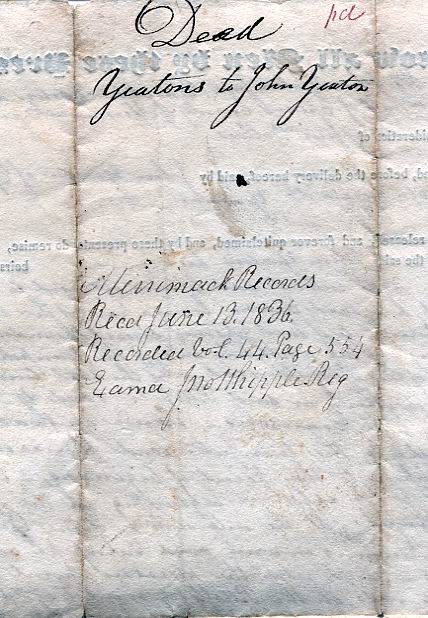 Dead
pd
Yeatons to John Yeaton
Know all Men by these Pres
sideration of
d, before the delivery hereof, paid by
released, and forever quitclaimed, and by these presents do remise,
the said
heirs
Merrimack Records
Recd June 13. 1836.
Recorded Vol. 44. Page 554
Exama Jno Whipple Reg